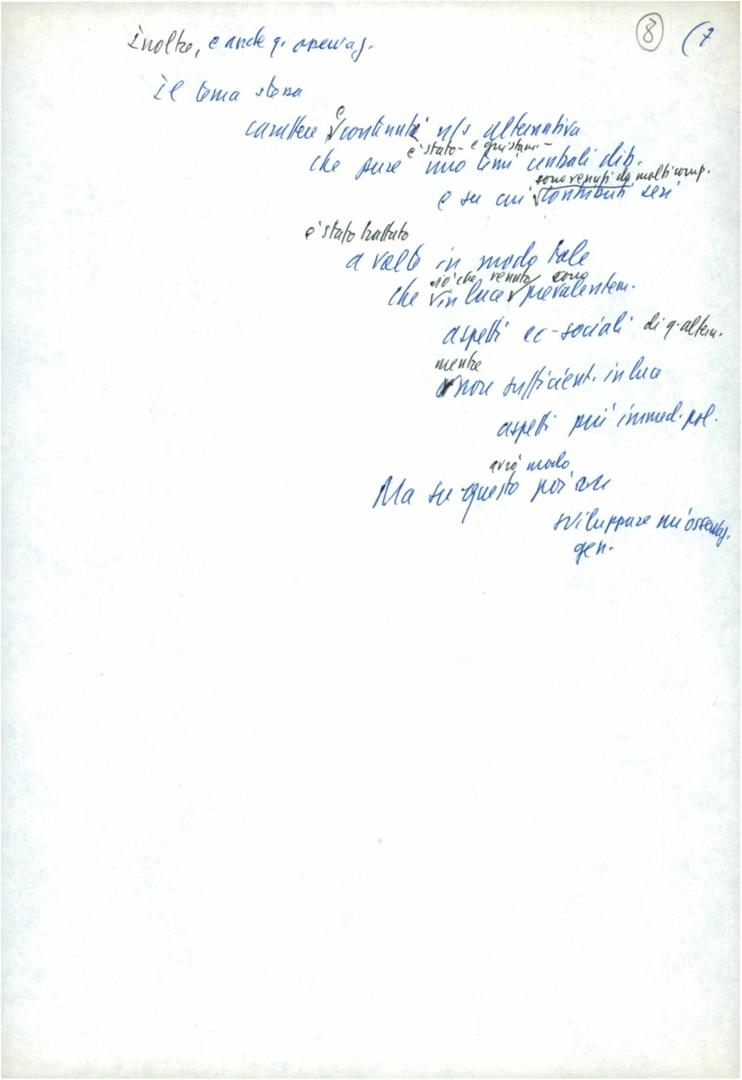 8 (7
Inoltre, e anche q. osservaz.
Il tema stesso
carattere e continuità ns alternativa
è stato e
che pure uno temi centrali dib.
sono venuti da molti comp.
e su cui contributi seri
è stato trattato
a volte in modo tale
ciò che venuto sono
che in luce prevalentem.
aspetti ec-sociali di q. altern.
mentre
non sufficient. in luce
aspetti più immed. pol.
avrò modo
Ma su questo poi
sviluppare un'osservaz.
gen.